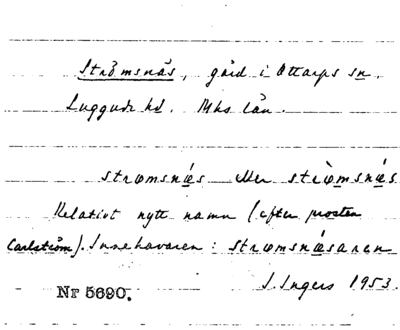 Strömsnäs, gård i Ottarps sn,
Luggude hd. Mhs län.
strømsnæs eller strømsnæs
Relativt nytt namn (efter prosten
Carlström). Innehavaren: strømsnæsaren
I. Ingers 1953.
Nr 5690.